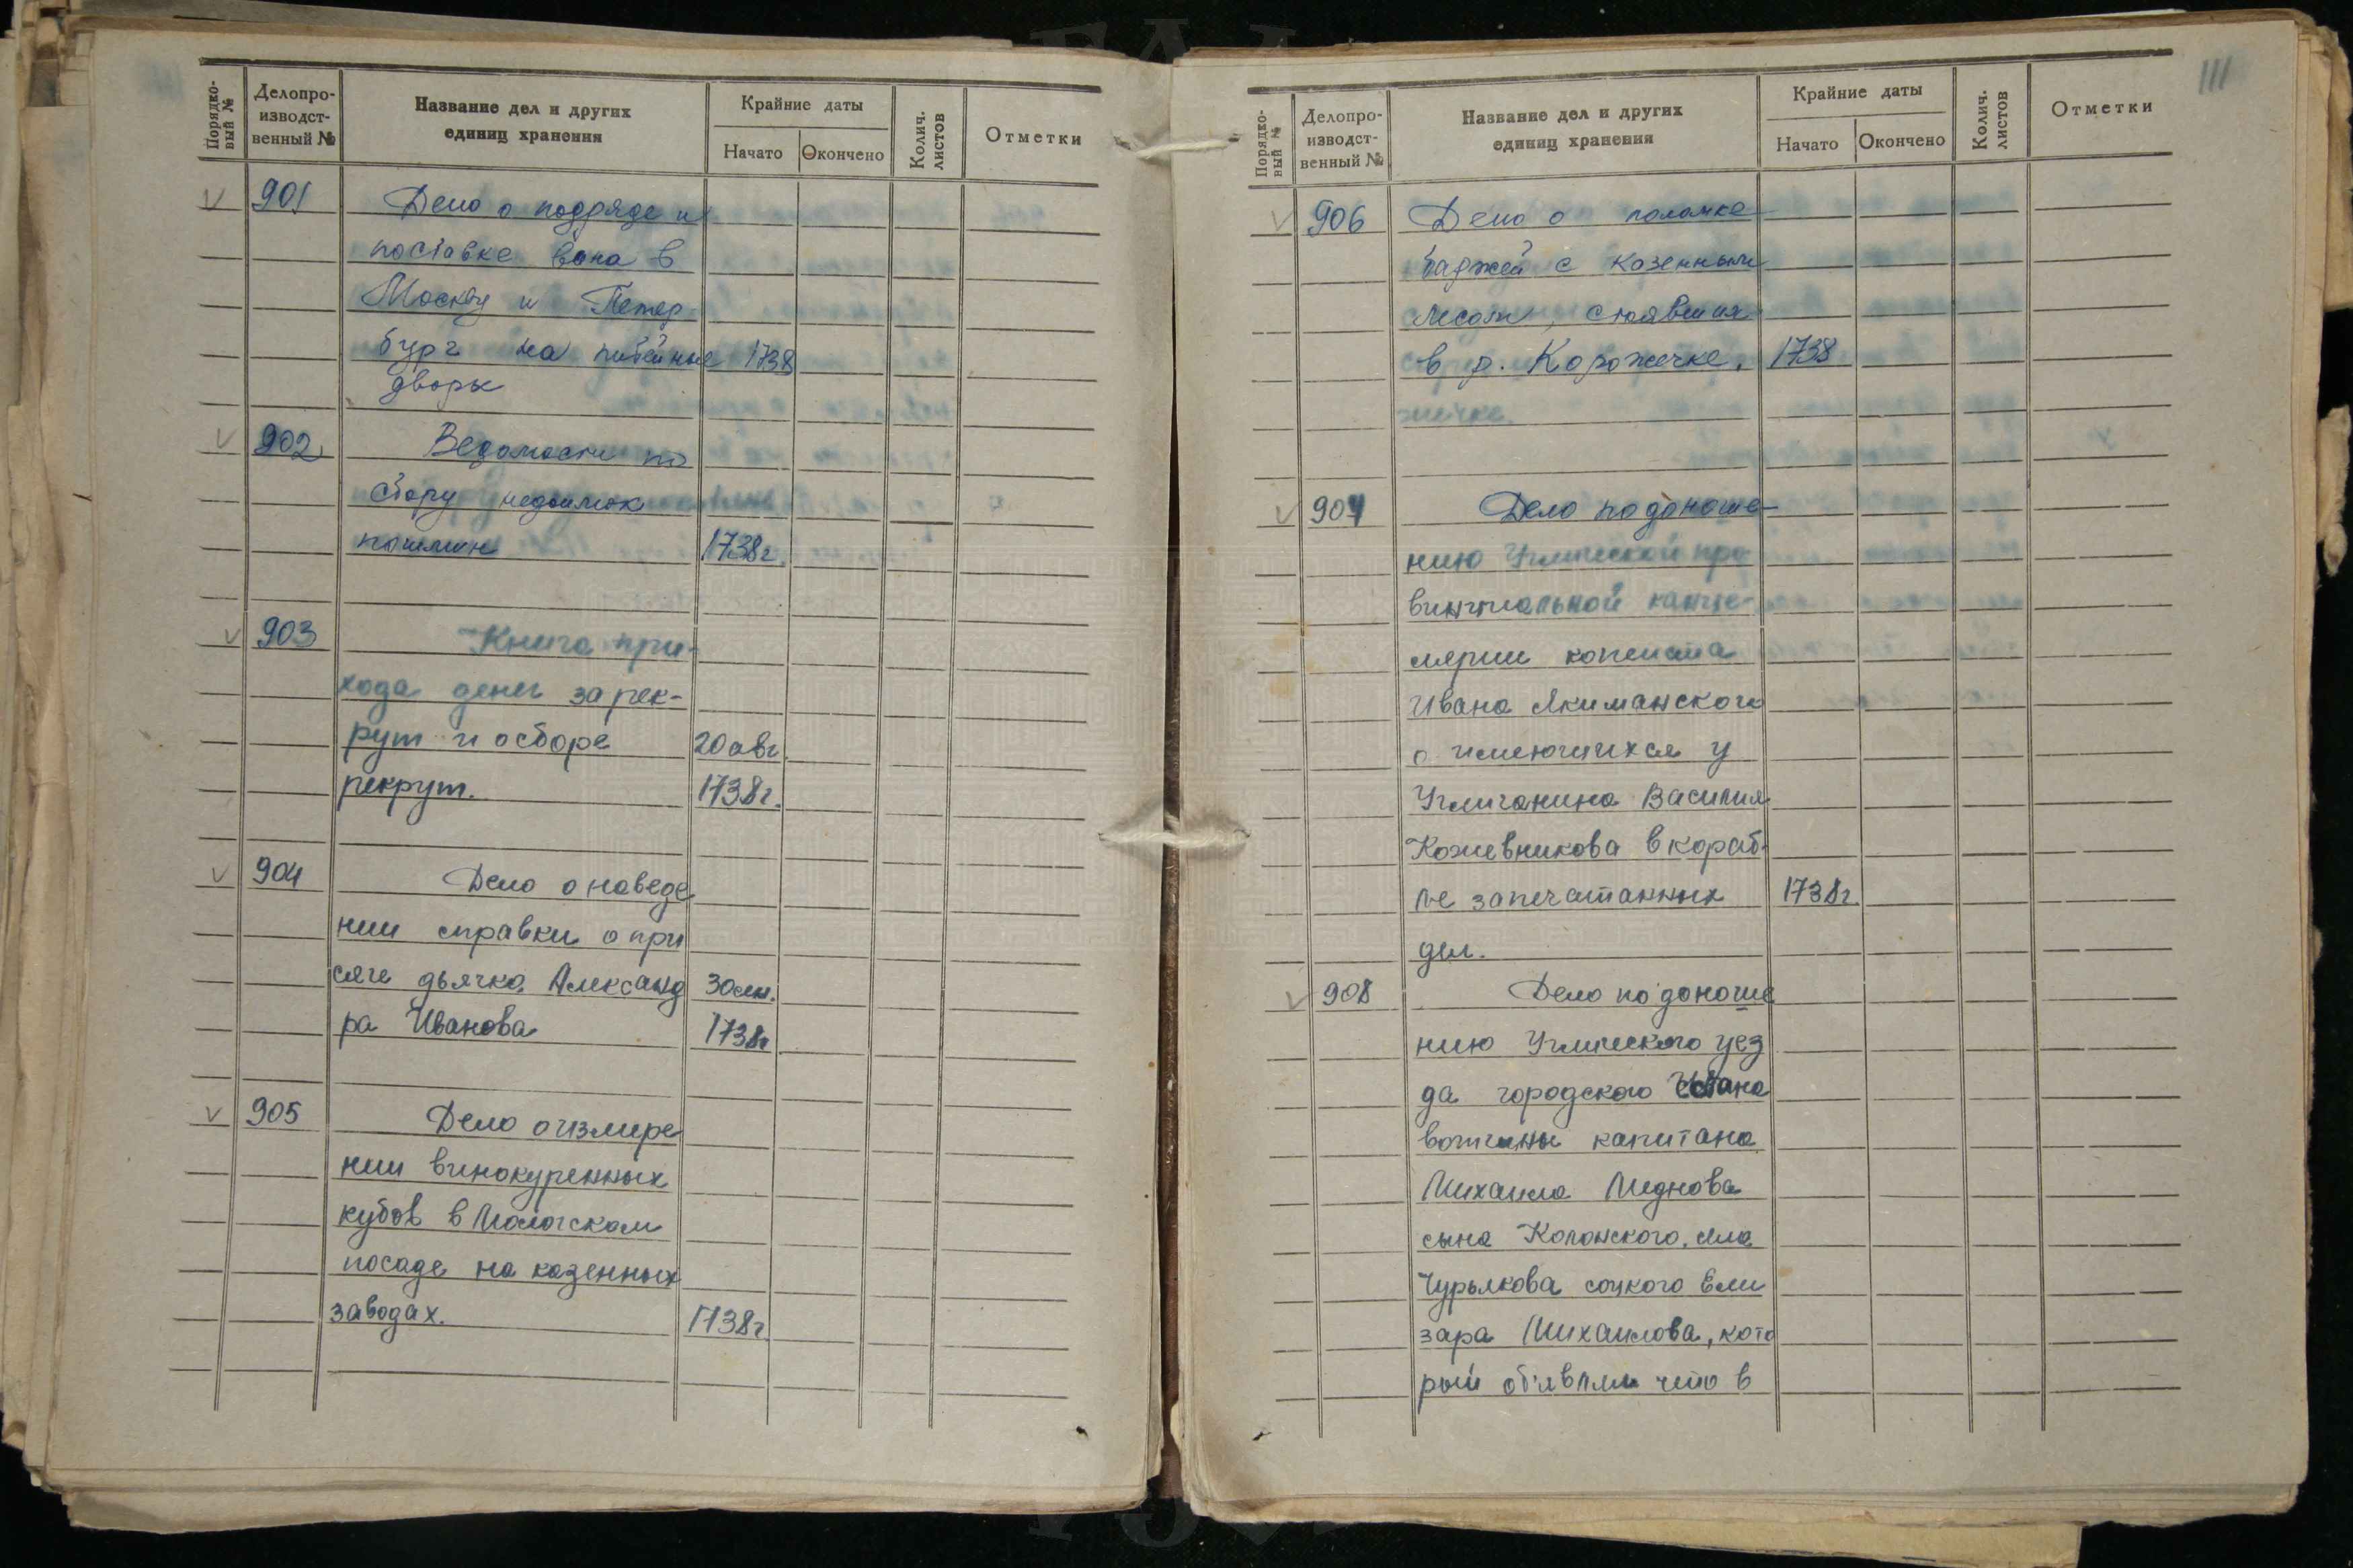 Порядко-
вый №
Делопро-
изводст-
венный №
Название дел и других
единиц хранения
Крайние даты
Начато
Окончено
Колич.
листов
Отметки
901
Дело о подряде и
поставке вина в
Москву и Петер
бург на питейные 1738
дворы
902
Ведомости по
сбору недоимок
пошлин 1738 г.
903
Книга при-
хода денег за рек-
рут и о сборе 20 авг.
рекрут. 1738 г.
904
Дело о наведе
нии справки о при
сяге дьячка Александ 30 сен.
ра Иванова 1738 г
905
Дело о измире
нии винокуренных
кубов в Мологском
посаде на казенных
заводах. 1738 г
111
Порядко-
вый №
Делопро-
изводст-
венный №
Название дел и других
единиц хранения
Крайние даты
Начато
Окончено
Колич.
листов
Отметки
906
Дело о поломке
баржей с казенным
лесом, стоявших
в р. Корожечке. 1738
907
Дело по доноше
нию Угличской про
винциальной канце-
лярии копеиста
Ивана Якиманского
о имеющихся у
Угличанина Василия
Кожевникова в кораб-
ле запечатанных 1738 г.
дел.
908
Дело по доноше
нию Угличского уез
да городского стана
вотчины капитана
Михаила
сына села
Чурьякова соцкого Ели
зара Михаилова, кото
рый об'являл что в